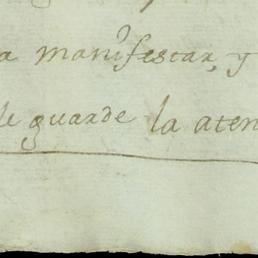 a manifestar, y
le guarde la aten